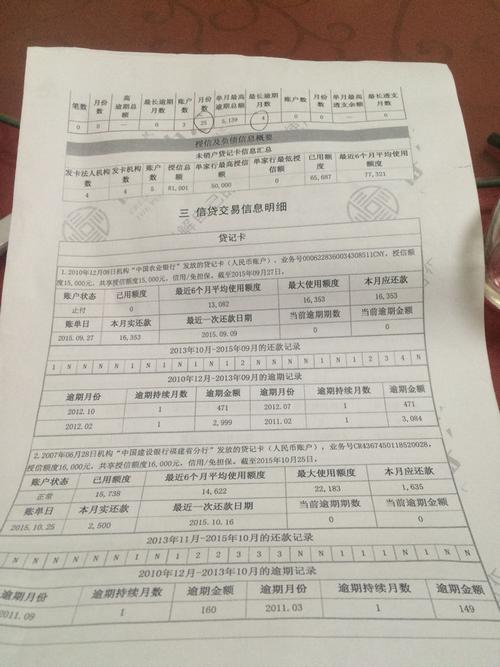 笔数 月份数 高逾期总额 最长逾期月数 账户数 月份数 单月最高逾期总额 最长逾期月数 账户数 月份数 单月最高透支余额 最长透支月数
0 0 0 3 25 5,139 4 0 0 0 0
授信及负债信息概要
未销户贷记卡信息汇总
发卡法人机构数 发卡机构数 账户数 授信总额 单家行最高授信额 单家行最低授信额 已用额度 最近6个月平均使用额度
4 4 5 81,001 50,000 0 65,687 77,321
三 信贷交易信息明细
贷记卡
1.2010年12月08日机构“中国农业银行”发放的贷记卡（人民币账户），业务号0006228360034308511CNY，授信额
度15,000元，共享授信额度15,000元，信用/免担保。截至2015年09月27日，
账户状态 已用额度 最近6个月平均使用额度 最大使用额度 本月应还款
止付 0 13,082 16,353 16,353
账单日 本月实还款 最近一次还款日期 当前逾期期数 当前逾期金额
2015.09.27 16,353 2015.09.09 0 0
2013年10月-2015年09月的还款记录
2010年12月-2013年09月的逾期记录
逾期月份 逾期持续月数 逾期金额 逾期月份 逾期持续月数 逾期金额
2012.10 1 471 2012.07 1 471
2012.02 1 2,999 2011.02 1 3,084
2.2007年06月28日机构“中国建设银行福建省分行”发放的贷记卡（人民币账户），业务号CR4367450118520028，
授信额度16,000元，共享授信额度16,000元，信用/免担保。截至2015年10月25日，
账户状态 已用额度 最近6个月平均使用额度 最大使用额度 本月应还款
正常 15,738 14,622 22,183 1,635
账单日 本月实还款 最近一次还款日期 当前逾期期数 当前逾期金额
2015.10.25 2,500 2015.10.16 0 0
2013年11月-2015年10月的还款记录
2010年12月-2013年10月的逾期记录
逾期月份 逾期持续月数 逾期金额 逾期月份 逾期持续月数 逾期金额
2011.09 1 160 2011.03 1 149